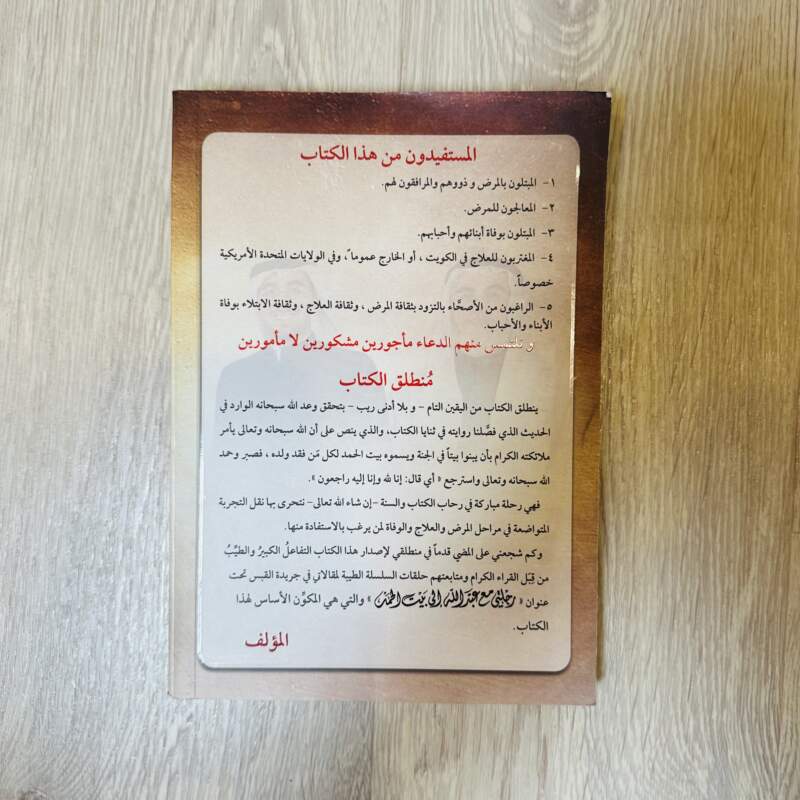 المستفيدون من هذا الكتاب
١- المبتلون بالمرض و ذووهم والمرافقون لهم.
٢- المعالجون للمرض.
٣- المبتلون بوفاة أبنائهم وأحبابهم.
٤- المغتربون للعلاج في الكويت ، أو الخارج عموماً ، وفي الولايات المتحدة الأمريكية
خصوصاً.
٥- الراغبون من الأصحَّاء بالتزود بثقافة المرض ، وثقافة العلاج ، وثقافة الابتلاء بوفاة
الأبناء والأحباب.
و نلتمس منهم الدعاء مأجورين مشكورين لا مأمورين
مُنطلق الكتاب
ينطلق الكتاب من اليقين التام - و بلا أدنى ريب - بتحقق وعد الله سبحانه الوارد في
الحديث الذي فصَّلنا روايته في ثنايا الكتاب، والذي ينص على أن الله سبحانه وتعالى يأمر
ملائكته الكرام بأن يبنوا بيتاً في الجنة ويسموه بيت الحمد لكل مَن فقد ولده ، فصبر وحمد
الله سبحانه وتعالى واسترجع « أي قال: إنا لله وإنا إليه راجعون ».
فهي رحلة مباركة في رحاب الكتاب والسنة -إن شاء الله تعالى- نتحرى بها نقل التجربة
المتواضعة في مراحل المرض والعلاج والوفاة لمن يرغب بالاستفادة منها.
وكم شجعني على المضي قدماً في منطلقي لإصدار هذا الكتاب التفاعلُ الكبيرُ والطيِّبُ
من قِبَل القراء الكرام ومتابعتهم حلقات السلسلة الطيبة لمقالاتي في جريدة القبس تحت
عنوان « رحلتي مع عبد الله إلى بيت الحمد » والتي هي المكوِّن الأساس لهذا
الكتاب.
المؤلف